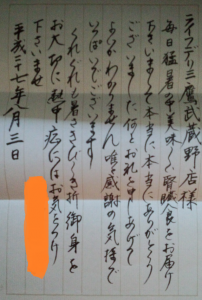 ライフデリ三鷹武蔵野店様
毎日猛暑の中美味しい腎臓食をお届け
下さいまして本当に本当にありがとう
ございました何とお礼を申しあげて
よいかわかりません唯感謝の気持で
いっぱいでございます
くれぐれも暑さきびしき折御身を
お大切に熱中病にはお気をつけ
下さいませ
平成二十七年八月三日